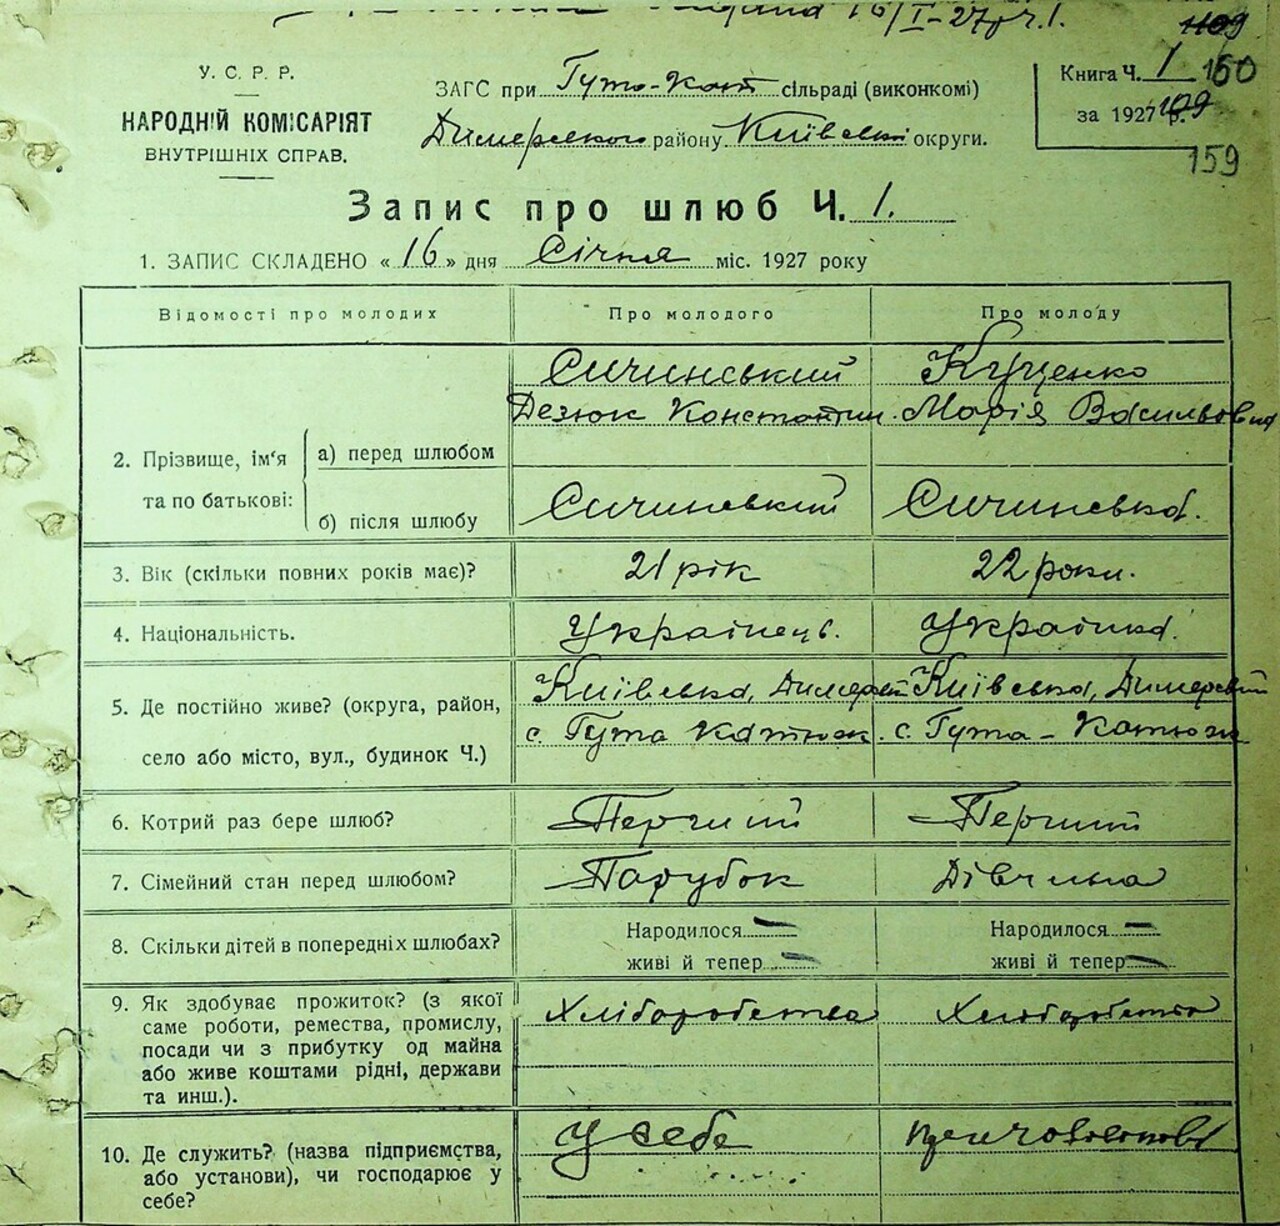 16/I-27 р. ч. 1.
1109
У. С. Р. Р.
НАРОДНІЙ КОМІСАРІЯТ
ВНУТРІШНІХ СПРАВ.
ЗАГС при Гуто-Кат сільраді (виконкомі)
Димерського району Київської округи.
Книга Ч. 1 160
за 1927 р. 109
159
Запис про шлюб Ч. 1.
1. ЗАПИС СКЛАДЕНО « 16 » дня Січня міс. 1927 року
Відомості про молодих Про молодого Про молоду
Сичинський Куценко
Константин. Марія Васильовна
2. Прізвище, ім'я та по батькові:
а) перед шлюбом
б) після шлюбу Сичинський Сичинська.
3. Вік (скільки повних років має)? 21 рік 22 роки.
4. Національність. Українець. Українка.
5. Де постійно живе? (округа, район, Київська, Димерський Київська, Димерський
село або місто, вул., будинок Ч.) с. Гута Катюж. с. Гута-Катюжа
6. Котрий раз бере шлюб? Перший Перший
7. Сімейний стан перед шлюбом? Парубок Дівчина
8. Скільки дітей в попередніх шлюбах? Народилося — Народилося —
живі й тепер — живі й тепер —
9. Як здобуває прожиток? (з якої Хліборобства Хліборобство
саме роботи, ремества, промислу,
посади чи з прибутку од майна
або живе коштами рідні, держави
та инш.).
10. Де служить? (назва підприємства, У себе
або установи), чи господарює у
себе?